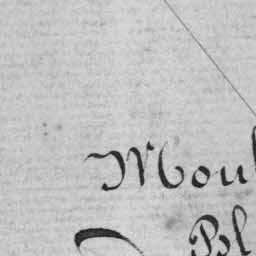 Moul
Pl